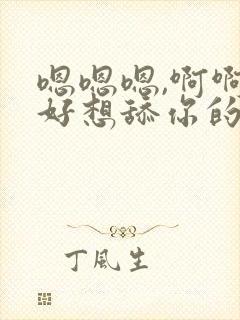 嗯嗯嗯,啊啊
好想舔你的
丁風生